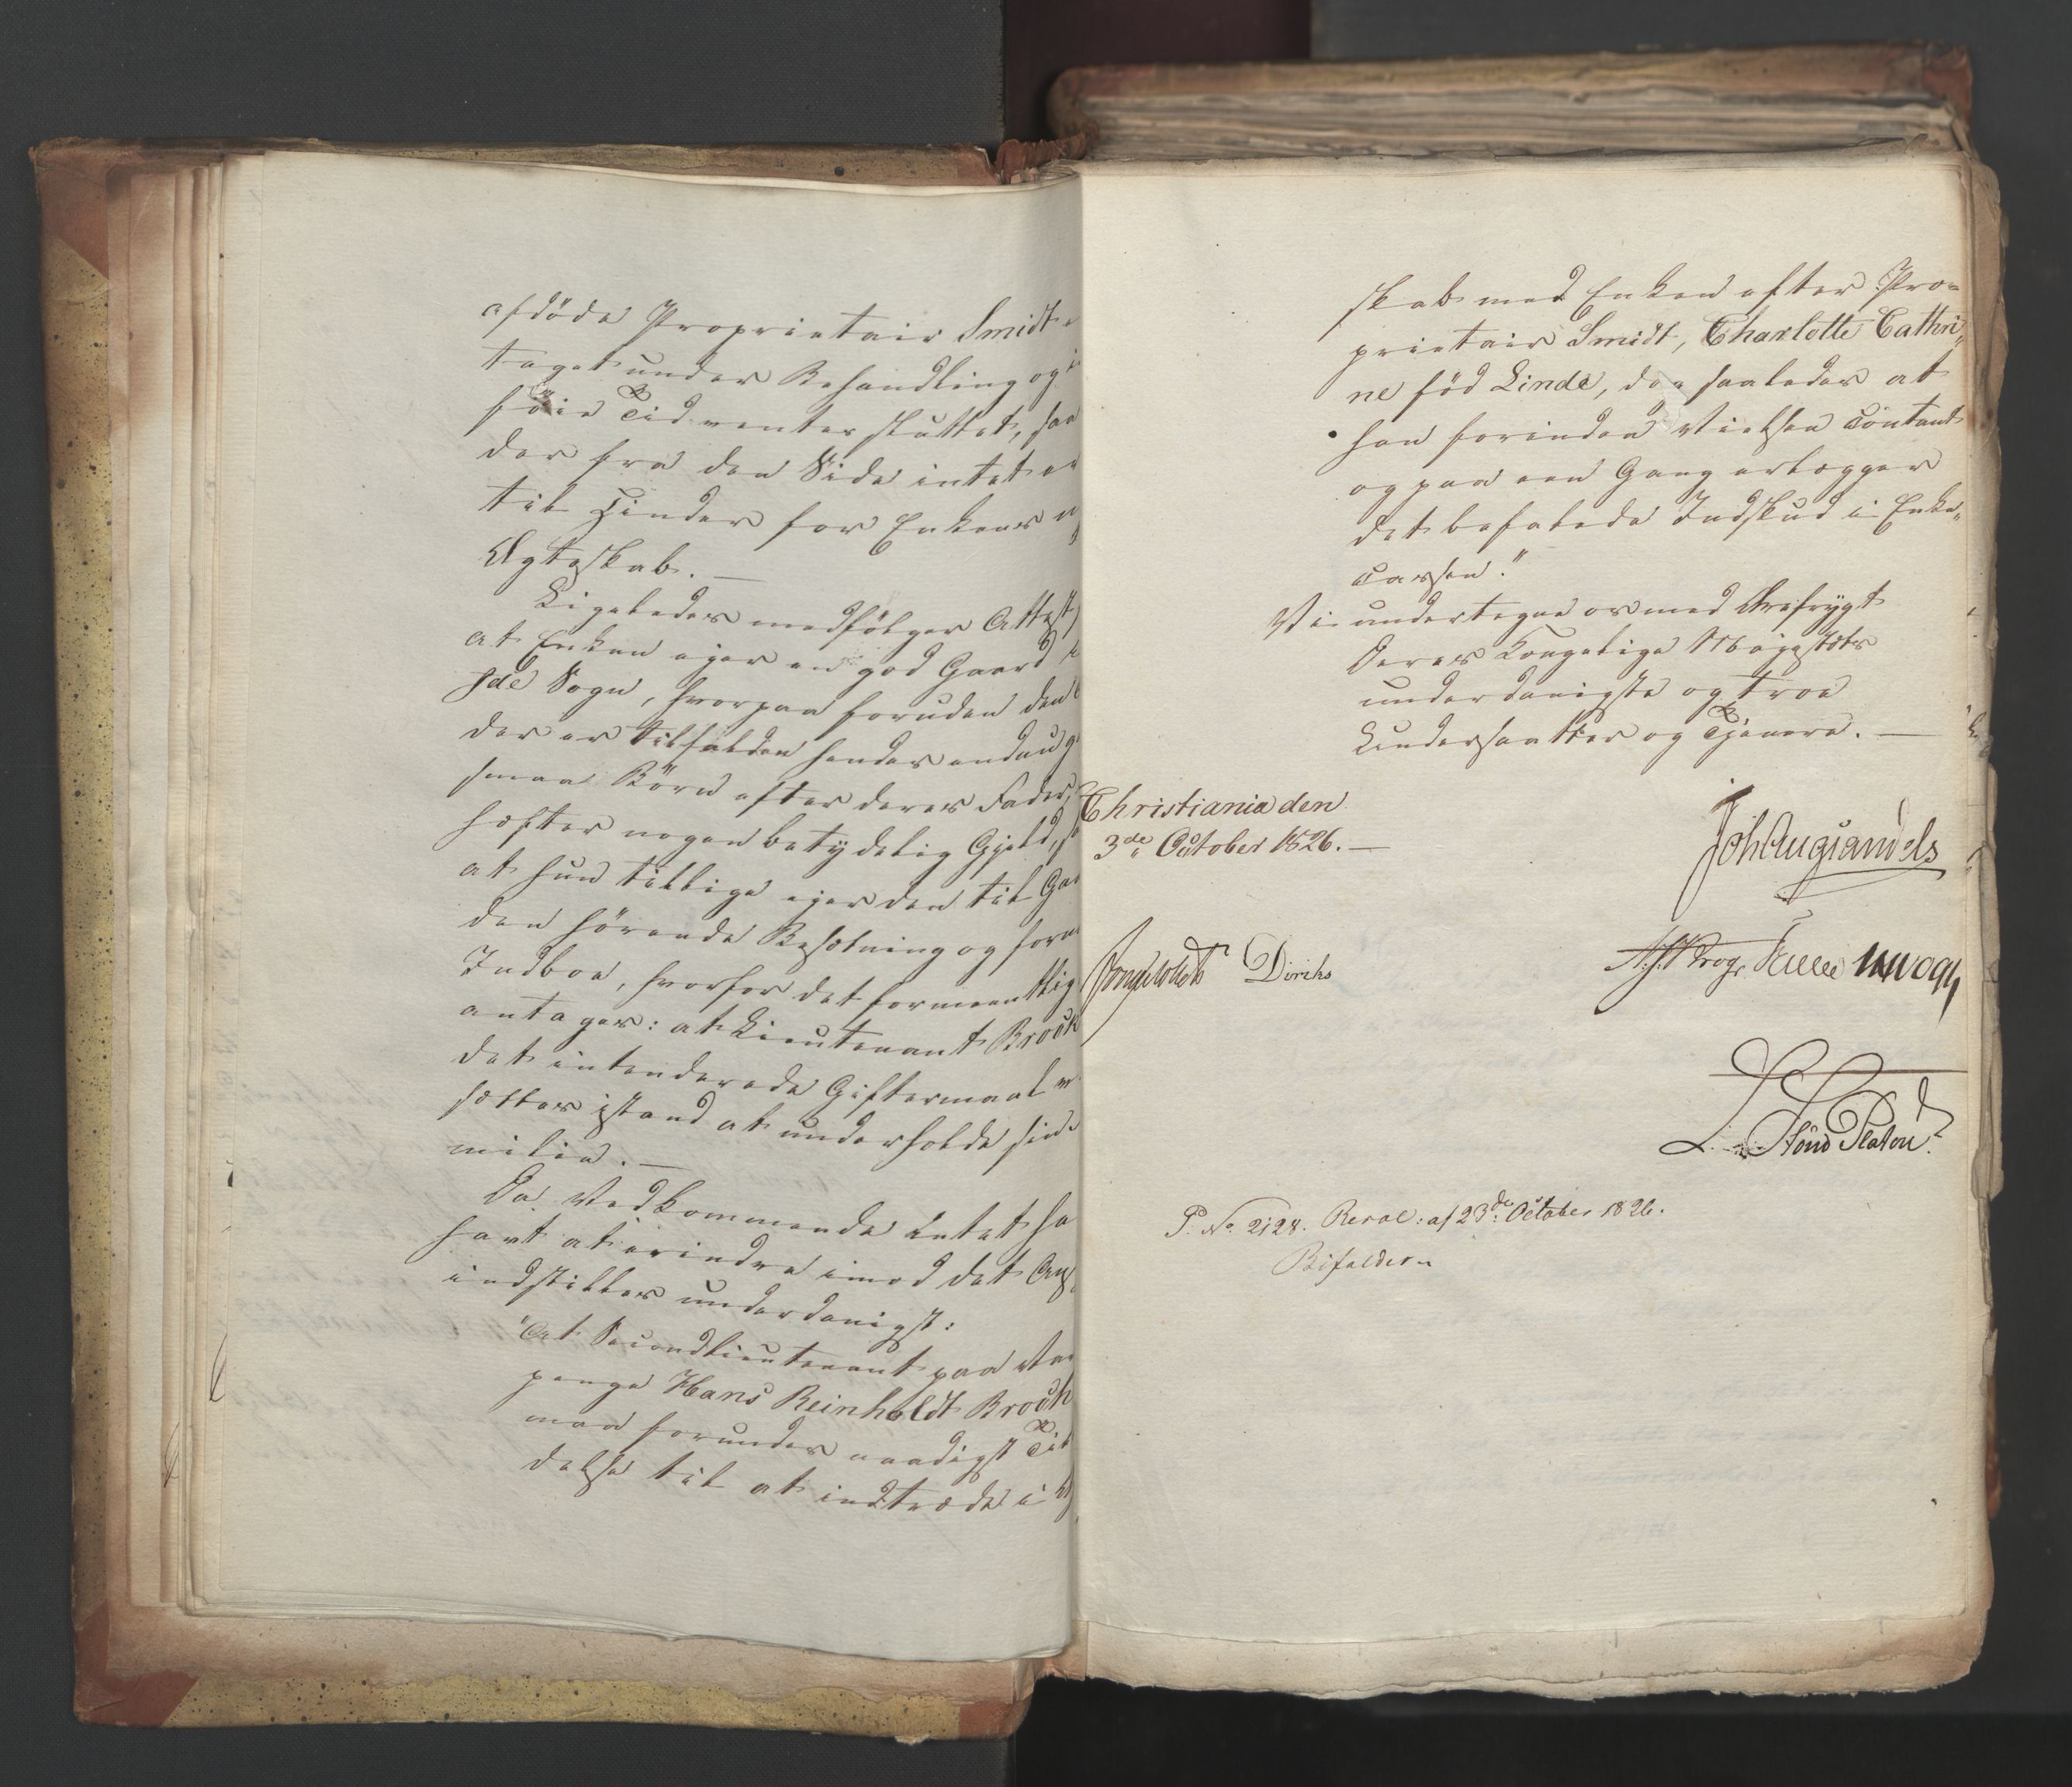 afdöde Proprietair Smidt e
taget under Behandling og i
föie Tid ventes sluttet, saa
der fra den Side intet er
til Hinder for Enkens n
Ægteskab. —
Ligeledes medfölger Attest
at Enken ejer en god Gaard i
hde Sogn, hvorpaa foruden den
der er tilfalden hendes endnu
smaa Börn efter deres Fader,
hefter nogen betydelig Gjeld, sa
at hun tillige ejer den til Gaa
den hörende Besætning og forn
Indboe, hvorfor det formeentlig
antages: at Lieutenant Brock
det intenderede Giftermaal v
sættes istand at underholde sin
milie. —
Da Vedkommende Intet ha
havt at erindre imod det Ans
indstilles underdanigst:
"At Secondlieutenant paa Var
penge Hans Reinholdt Brock
maa forundes naadigst Til
delse til at indtræde i Æg
skab med Enken efter Pro=
prietair Smidt, Charlotte Cathri„
ne föd Linde, dog saaledes at
han forinden Vielsen contant
og paa een Gang erlægger
det befalede Indskud i Enke„
cassen."
Vi undertegne os med Ærefrygt
Deres Kongelige Majestæts
underdanigste og troe
Undersaatter og Tjenere. —
Christiania den
3de October 1826. —
Joh Aug Sandels
Diriks
L. Stoud Platou
P. No 2128. Resol: af 23de October 1826.
Bifaldes